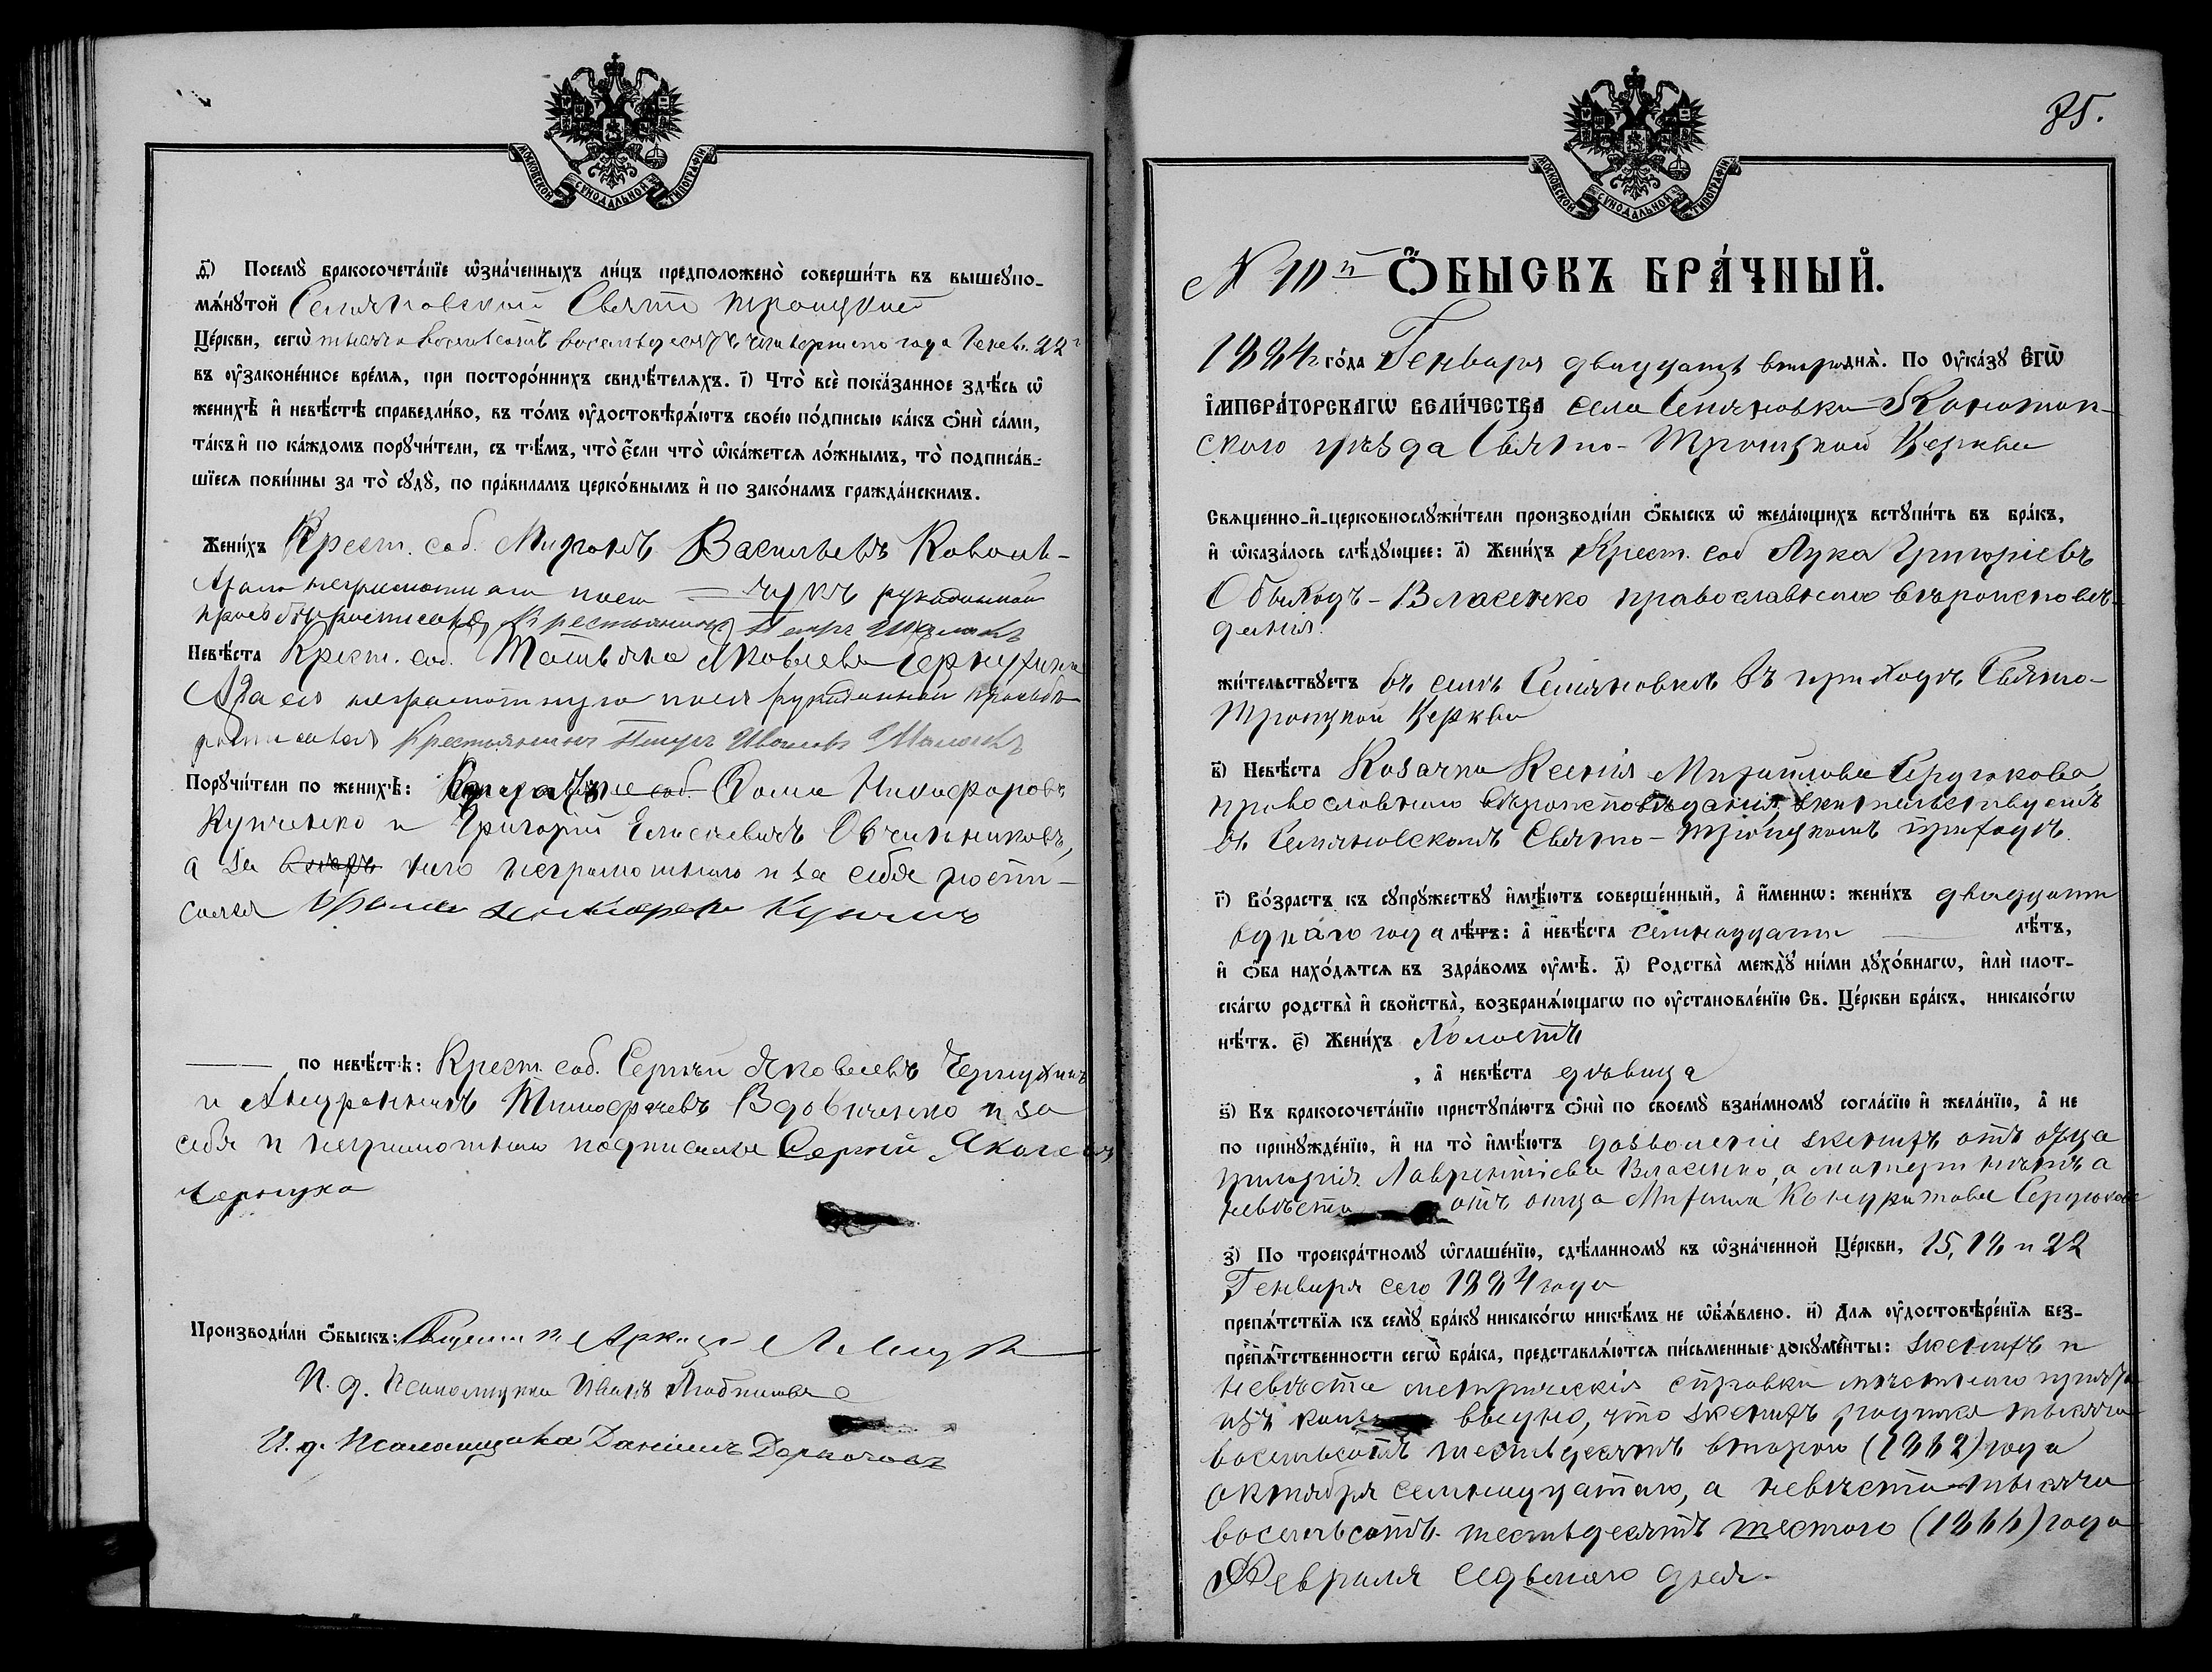 МОСКОВСКОЙ СѴНОДАЛЬНОЙ ТИПОГРАФІИ
д҃) Посемꙋ̀ бракосочета́нїе ѡ҆зна́ченныхъ ли́цъ предположено̀ соверши́ть въ вышеꙋпо-
мѧ́нꙋтой Семяновской Свято Троицкой
Це́ркви, сегѡ̀ тысяча восемьсотъ восемьдесятъ четвертого года Генв. 22
въ ᲂу҆законе́нное вре́мѧ, при посторо́ннихъ свидѣ́телѧхъ. і҃) Что̀ всѐ пока́занное здѣ́сь ѡ҆
женихѣ̀ и҆ невѣ́стѣ справедли́во, въ то́мъ ᲂу҆достовѣрѧ́ютъ свое́ю по́дписью ка́къ ѻ҆нѝ са́ми,
та́къ и҆ по ка́ждомъ порꙋчи́тели, съ тѣ́мъ, что̀ є҆́сли что̀ ѡ҆ка́жется ло́жнымъ, то̀ подписа́в-
шїеся пови́нны за то̀ сꙋдꙋ̀, по пра́виламъ церко́внымъ и҆ по зако́намъ гражда́нскимъ.
Жени́хъ Крест. соб. Миронъ Васильевъ Коваль-
чукъ рукоданной
просьбѣ росписался Крестьянинъ Петръ
Невѣ́ста Крест. соб. Татьяна Яковлева Чернухина
А за ея неграмотную по ея рукоданной просьбѣ
росписался Крестьянинъ Петръ Ивановъ
Порꙋчи́тели по женихѣ̀: Фома Никифоровъ
Купченко и Григорій Елисѣевичъ Овчинниковъ,
а за него неграмотнаго и за себя роспи-
сался Фома
по невѣ́стѣ: Крест. соб. Сергѣй Яковлевъ Чернухинъ
и Андроникъ Тимофѣевъ Вдовиченко и за
себя и неграмотнаго подписался Сергѣй Яковлевъ
Чернуха
Производи́ли ѻ҆́быскъ: Священникъ
И. д. Псаломщика Иванъ
И. д. Псаломщика Даніилъ
МОСКОВСКОЙ СѴНОДАЛЬНОЙ ТИПОГРАФІИ
85.
№ 10й Ѻ҆́БЫСКЪ БРА́ЧНЫЙ.
1884 го́да Генваря двадцать второго днѧ̀. По ᲂу҆ка́зꙋ Є҆гѡ̀
І҆мпера́торскагѡ Вели́чества села Семяновки Конотоп-
ского уѣзда Свято-Троицкой Церкви
Свѧще́нно-и҆-церковнослꙋжи́тели производи́ли ѻ҆́быскъ ѡ҆ жела́ющихъ встꙋпи́ть въ бра́къ,
и҆ ѡ҆каза́лось слѣ́дꙋющее: а҃) Жени́хъ Крест. соб Лука Григоріевъ
Обыходъ-Власенко православного вѣроисповѣ-
данія.
жи́тельствꙋетъ въ селѣ Семяновкѣ въ приходѣ Свято-
Троицкой Церкви
в҃) Невѣ́ста Козачка Ксенія Михайлова Сердюкова
православного вѣроисповѣданія, жительствуетъ
въ Семяновскомъ Свято-Троицкомъ приходѣ.
г҃) Во́зрастъ къ сꙋпрꙋ́жествꙋ и҆мѣ́ютъ соверше́нный, а҆ и҆́меннѡ: жени́хъ двадцати
одного года лѣ́тъ: а҆ невѣ́ста семнадцати лѣ́тъ,
и҆ ѻ҆́ба нахо́дѧтся въ здра́вомъ ᲂу҆мѣ̀. д҃) Родства̀ междꙋ̀ ни́ми дꙋхо́внагѡ, и҆лѝ плот-
ска́гѡ родства̀ и҆ свойства̀, возбранѧ́ющагѡ по ᲂу҆становле́нїю Св. Це́ркви бра́къ, никако́гѡ
нѣ́тъ. є҃) Жени́хъ Холостъ
, а҆ невѣ́ста дѣвица
ѕ҃) Къ бракосочета́нїю пристꙋпа́ютъ ѻ҆нѝ по своемꙋ̀ взаи́мномꙋ согла́сїю и҆ жела́нїю, а҆ не
по принꙋжде́нїю, и҆ на то̀ и҆мѣ́ютъ дозволеніе женихъ отъ отца
Григорія Лаврентіева Власенко, а матери нѣтъ а
невѣста отъ отца Михаила Кондратова Сердюкова
з҃) По троекра́тномꙋ ѡ҆глаше́нїю, сдѣ́ланномꙋ въ ѡ҆зна́ченной Це́ркви, 15, 18 и 22
Генваря сего 1884 года
препѧ́тствїѧ къ семꙋ̀ бра́кꙋ никако́гѡ никѣ́мъ не ѡ҆б̾ѧ́влено. и҃) Для ᲂу҆достовѣре́нїѧ без-
препѧ́тственности сегѡ̀ бра́ка, представлѧ́ются пи́сьменные докꙋме́нты: женихъ и
невѣста метрическія справки мѣстного причта
изъ коихъ видно, что женихъ родился тысяча
восемьсотъ шестьдесятъ второго (1862) года
октября семнадцатаго, а невѣста тысяча
восемьсотъ шестьдесятъ шестого (1866) года
Февраля седьмого дня.